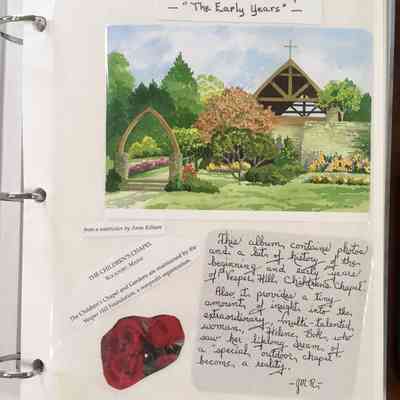 — "The Early Years" —
from a watercolor by Anne Kilham
THE CHILDREN'S CHAPEL
Rockport, Maine
The Children's Chapel and Gardens are maintained by the
Vesper Hill Foundation, a nonprofit organization.
This album contains photos
and a bit of history of the
beginning and early years
of Vesper Hill Children's Chapel.
Also it provides a tiny
amount of insight into the
extraordinary, multi-talented
woman, Helene Bok, who
saw her lifelong dream of
a "special" outdoor chapel
become a reality.